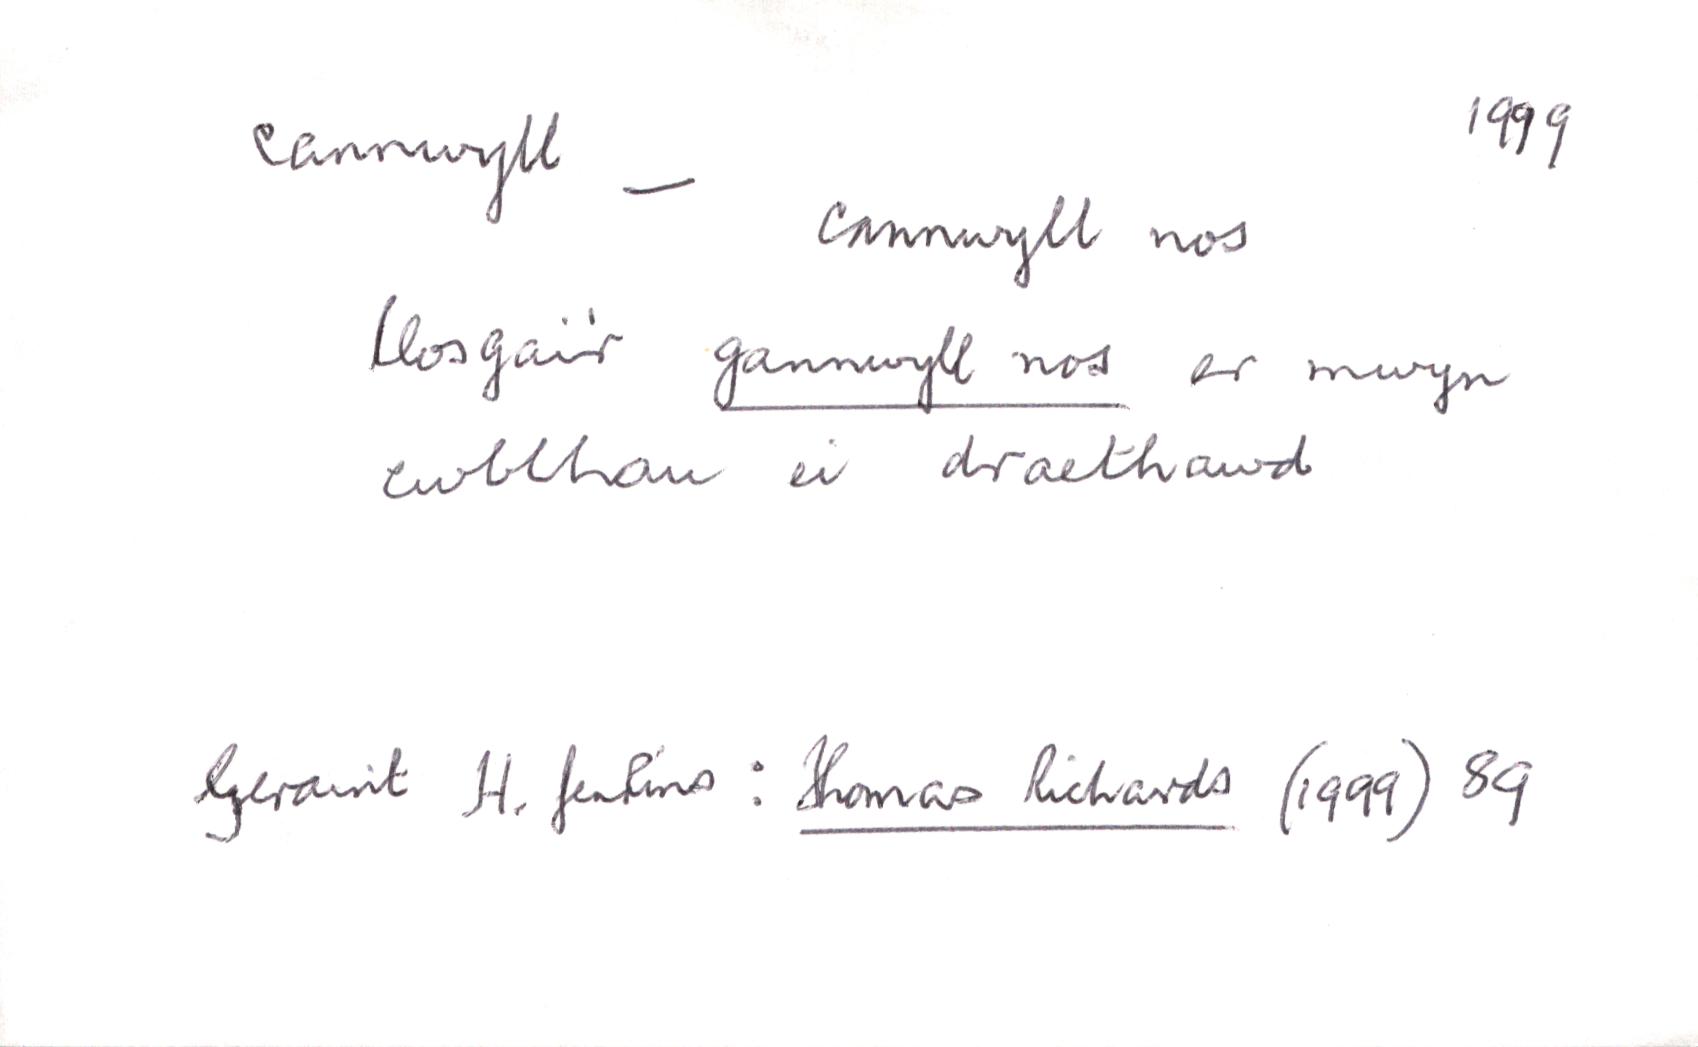 cannwyll – 1999
cannwyll nos
Llosgai'r gannwyll nos er mwyn
cwblhau ei draethawd
Geraint H. Jenkins : Thomas Richards (1999) 89